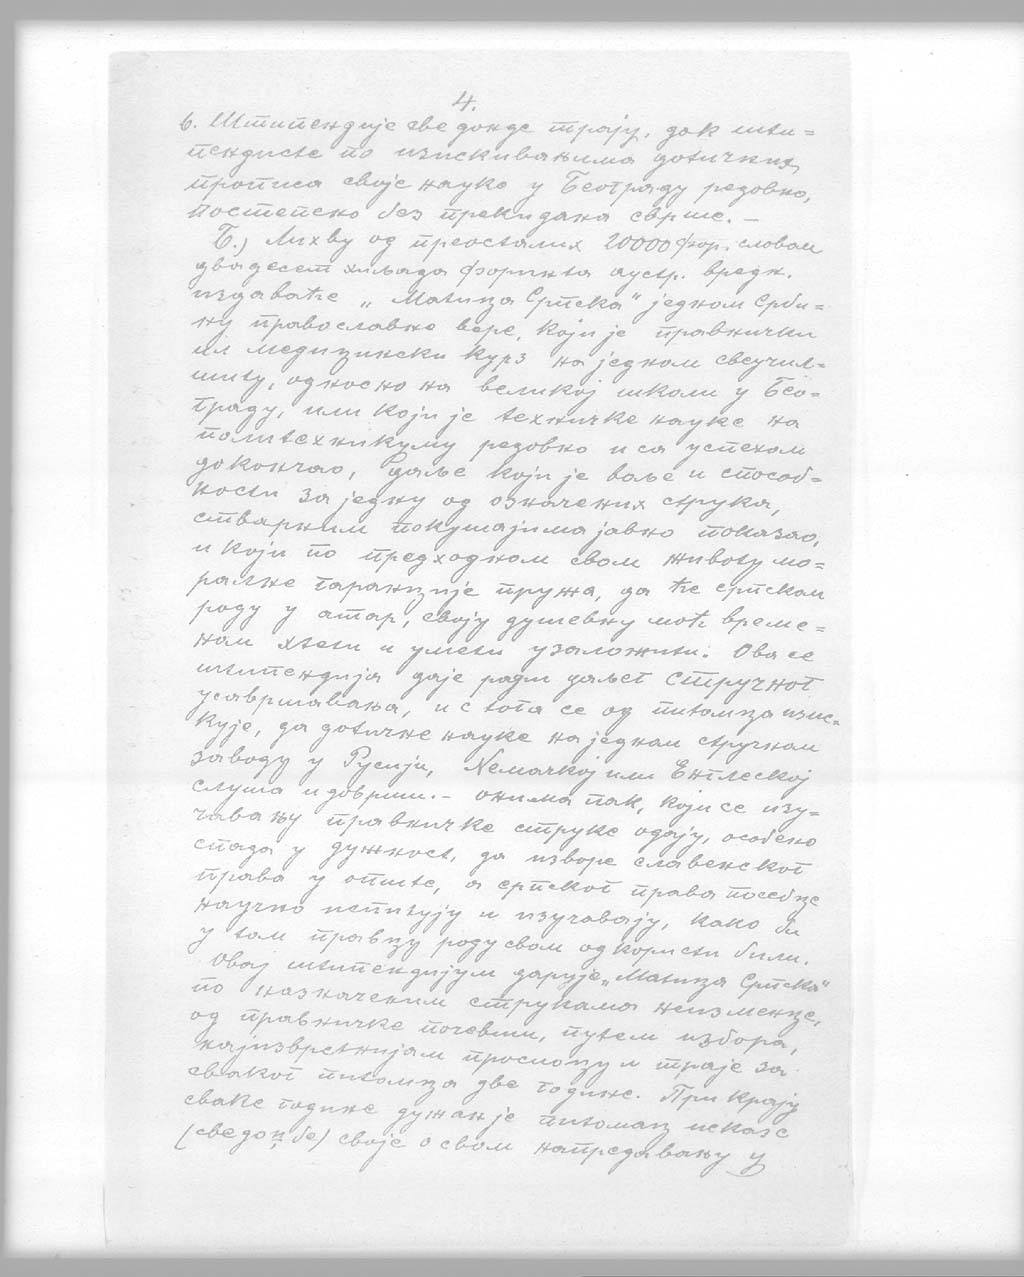 4.
6. Штипендије све донде трају, док шти=
пендисте по изискивањима дотичних
прописа своје науке у Београду редовно,
постепено без прекидана сврше. –
Б.) Лихву од преосталих 20000 фор. словом
двадесет хиљада форинта аустр. вредн.
издаваће „Матица Српска" једном Срби=
ну православне вере, који је правнички
ил медицински курз на једном свеучил=
шту, односно на великој школи у Бео=
граду, или који је техничке науке на
политехникуму редовно и са успехом
докончао, даље који је воље и способ=
ности за једну од означених струка,
стварним покушајима јавно показао,
и који по предходном свом животу мо=
ралне гаранције пружа, да ће српском
роду у атар, своју душевну моћ време=
ном хтети и умети узаложити. Ова се
штипендија даје ради даљег стручног
усавршавања, и с тога се од питомца изис=
кује, да дотичне науке на једном стручном
заводу у Русији, Немачкој или Енглеској
слуша и доврши. – Онима пак, који се изу=
чавању правничке струке одају, особено
спада у дужност, да изворе славенског
права у опште, а српског права посебце
научно испитују и изучавају, како би
у том правцу роду свом од користи били.
Овај штипендијум дарује „Матица Српска"
по назначеним струкама неизменце,
од правничке почевши, путем избора,
најизврснијам просиоцу и траје за
сваког питомца две године. При крају
сваке године дужан је питомац исказе
(сведоџбе) своје о свом напредавању у